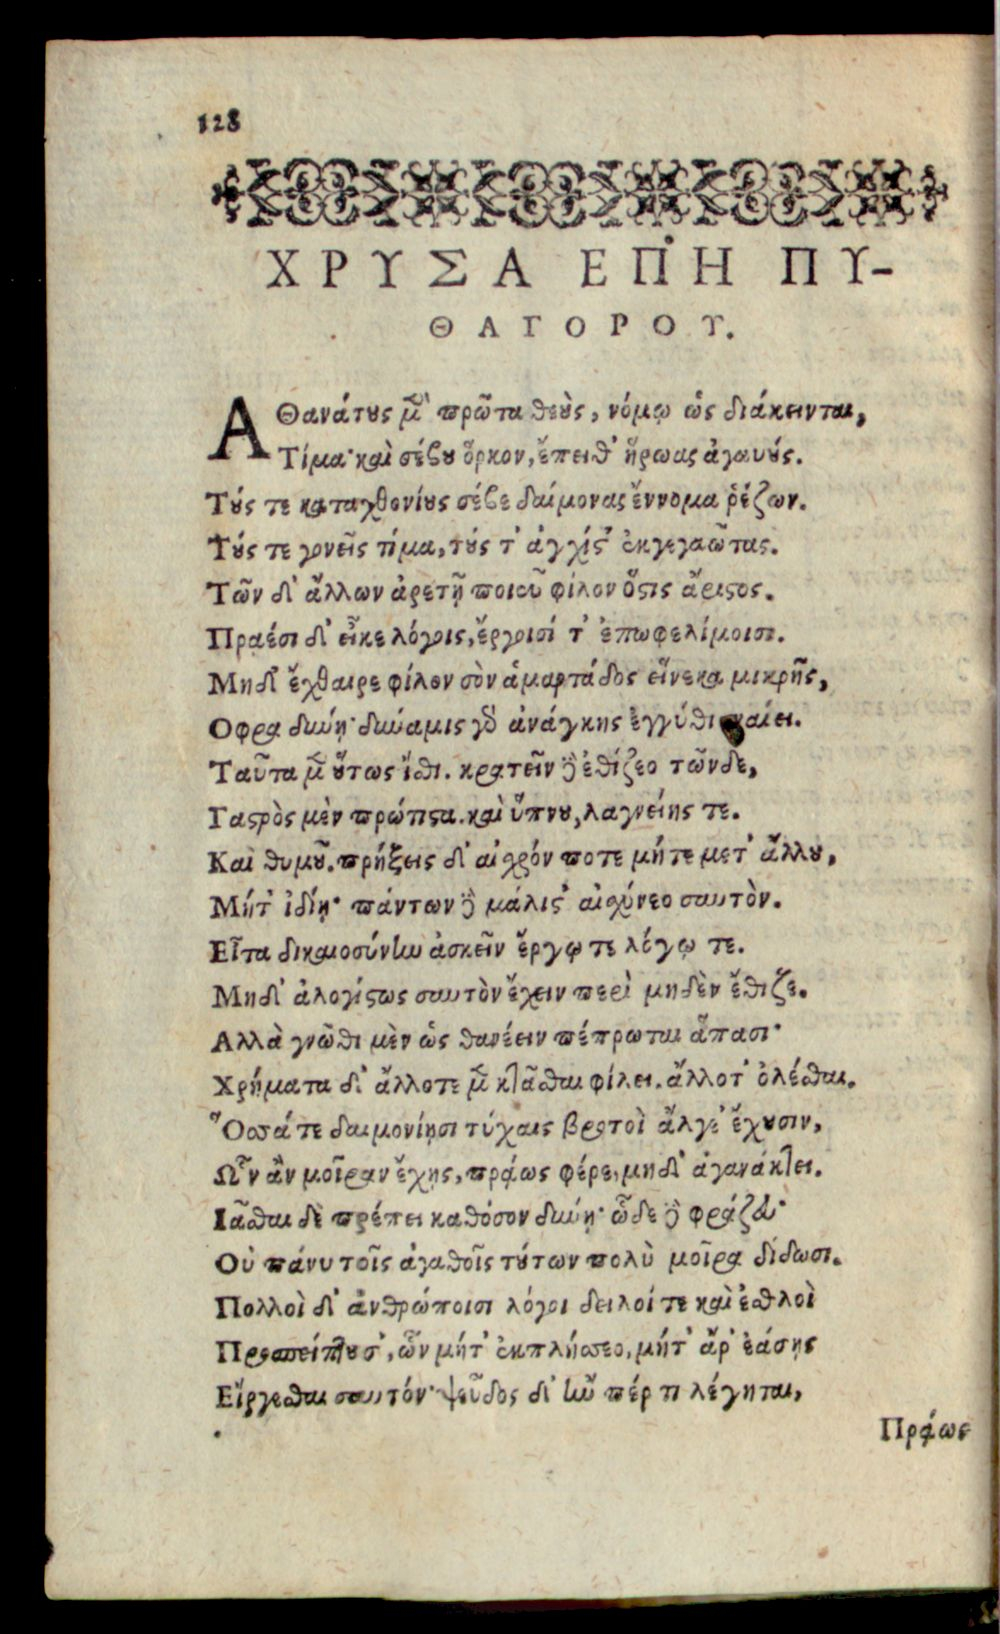 128
ΧΡΥΣΑ ΕΠΗ ΠΥ-
ΘΑΓΟΡΟΥ.
ΑΘανάτȣς μ̃ πρῶτα θεὺς, νόμῳ ὡς διάκεινται,
Τίμα· καὶ σέβȣ ὅρκον, ἔπειθ' ἥρωας ἀγαυύς.
Τύς τε καταχθονίȣς σέβε δαίμονας ἔννομα ῥέζων.
Τύς τε γονεῖς τίμα, τύς τ' ἀγχίς' ἐκγεγαῶτας.
Τῶν δ' ἄλλων ἀρετῇ ποιοῦ φίλον ὅϛις ἄριϛος.
Πραέσι δ' εἶκε λόγοις, ἔργοισί τ' ἐπωφελίμοισι.
Μηδ' ἔχθαιρε φίλον σὸν ἁμαρτάδος εἵνεκα μικρῆς,
Οφρα δυύῃ· δυύαμις γδ ἀνάγκης ἐγγύθι ναίει.
Ταῦτα μ̃ ȣ̔́τως ἴσθι. κρατεῖν ὃ ἐθίζεο τῶνδε,
Γαϛρὸς μὲν πρώτιϛα. καὶ ὕπνȣ, λαγνείης τε.
Και θυμȣ͂. πρήξεις δ' αἰσχρόν ποτε μήτε μετ' ἄλλȣ,
Μήτ' ἰδίῃ· πάντων ὃ μάλιϛ' αἰσχύνεο σαυτὸν.
Εἶτα δικαιοσύνην ἀσκεῖν ἔργῳ τε λόγῳ τε.
Μηδ' ἀλογίϛως σαυτὸν ἔχειν περὶ μηδὲν ἔθιζε.
Αλλὰ γνῶθι μὲν ὡς θανέειν πέπρωται ἅπασι·
Χρήματα δ' ἄλλοτε μ̃ κτᾶσθαι φίλει. ἄλλοτ' ὀλέσθαι.
Ὅσσά τε δαιμονίῃσι τύχαις βροτοὶ ἄλγε' ἔχȣσιν,
Ων ἂν μοῖραν ἔχῃς, πράως φέρε, μηδ' ἀγανάκτει.
Ιᾶσθαι δὲ πρέπει καθόσον δυύῃ· ὧδε ὃ φράζευ·
Οὐ πάνυ τοῖς ἀγαθοῖς τύτων πολὺ μοῖρα δίδωσι.
Πολλοὶ δ' ἀνθρώποισι λόγοι δειλοί τε καὶ ἐσθλοὶ
Προσπίπτȣσ', ὧν μήτ' ἐκπλήσσεο, μήτ' ἄρ' ἐάσῃς
Εἴργεσθαι σαυτόν· ψεῦδος δ' ἢν πέρ τι λέγηται,
Πράως